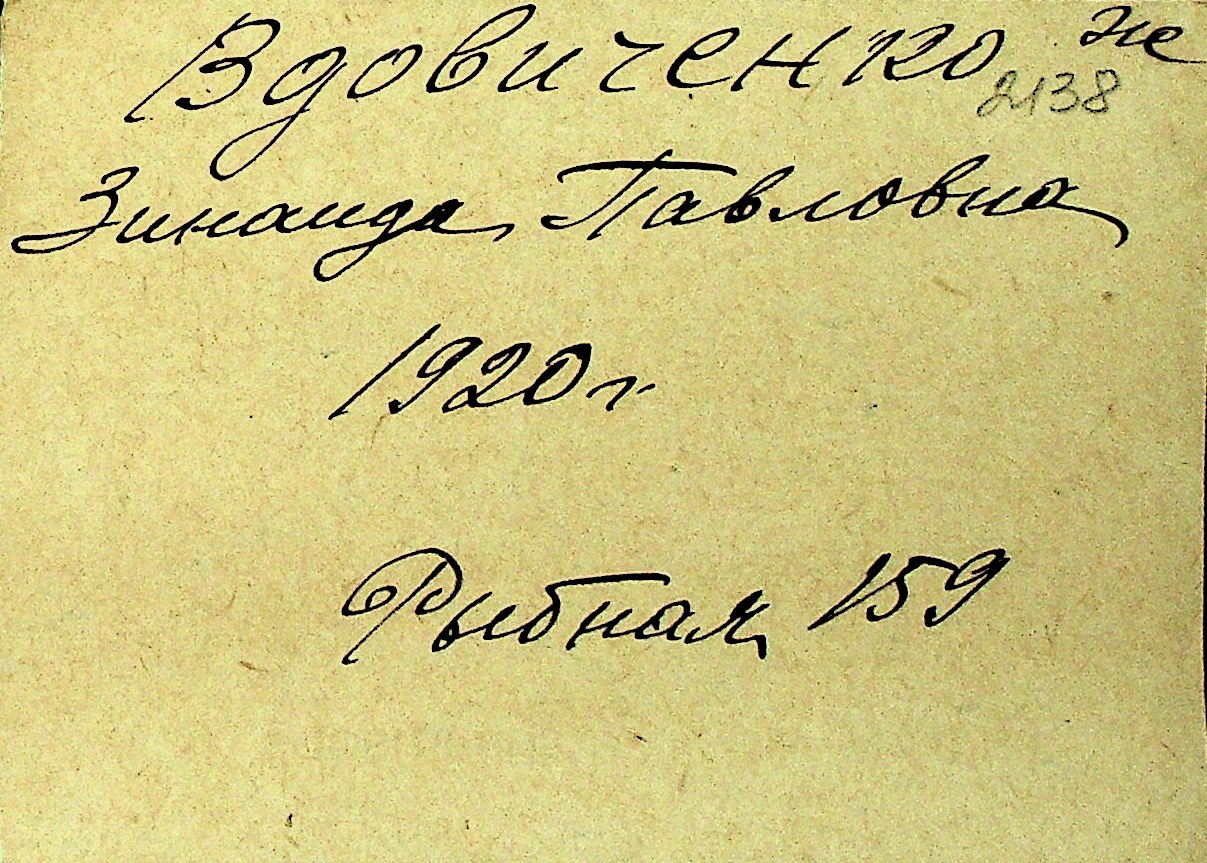 Вдовиченко же
2138
Зинаида Павловна
1920 г
Рыбная 159